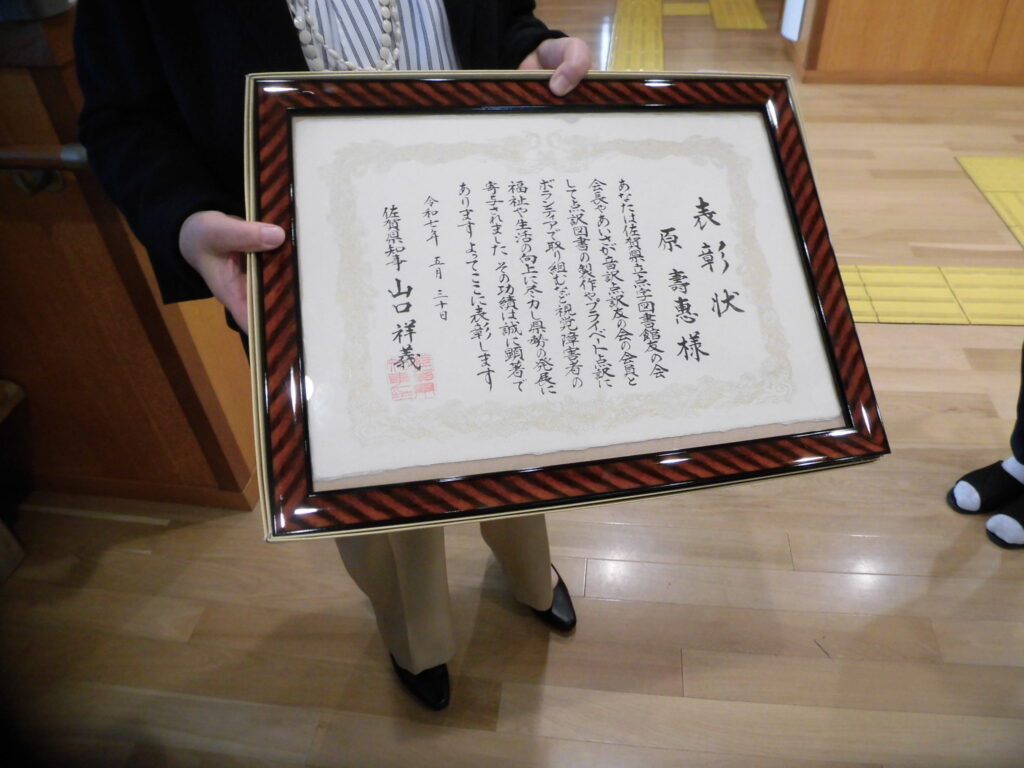 表彰状
原 壽惠様
あなたは佐賀県立点字図書館友の会
会長やあいさが音訳点訳友の会の会員と
して点訳図書の製作やプライベート点訳に
ボランティアで取り組むなど視覚障害者の
福祉や生活の向上に尽力し県勢の発展に
寄与されました その功績は誠に顕著で
あります よってここに表彰します
令和七年 五月 三十日
佐賀県知事 山口祥義